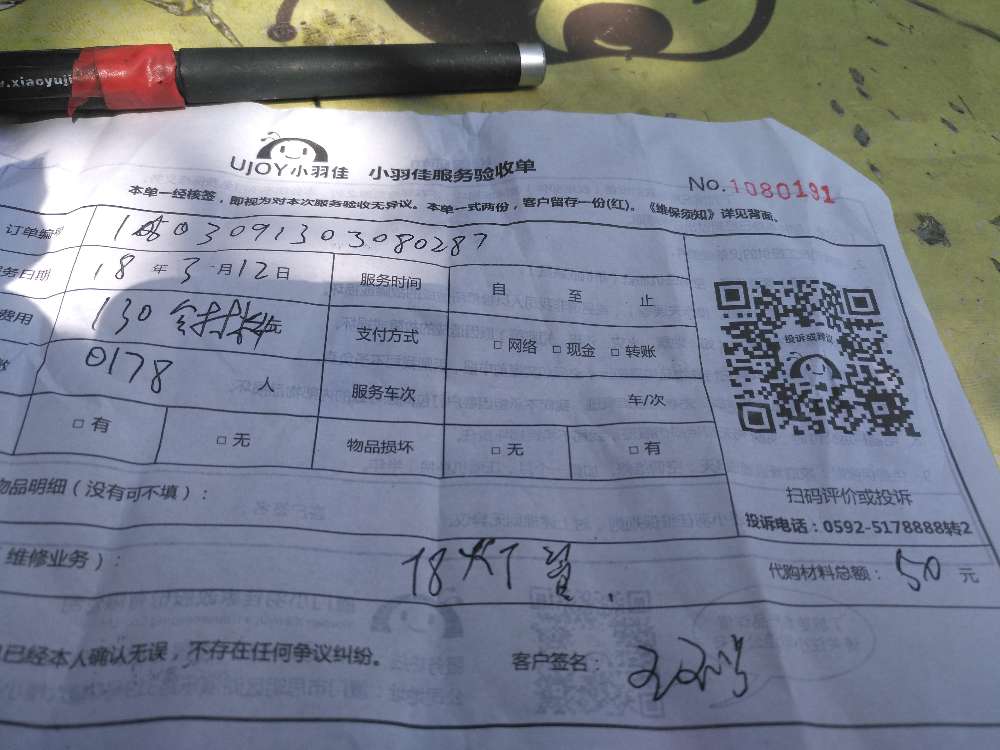 w.xiaoyuji
UJOY小羽佳 小羽佳服务验收单
No.1080191
本单一经核签，即视为对本次服务验收无异议。本单一式两份，客户留存一份(红)。《维保须知》详见背面。
订单编
务日期 18 年 3 月 12 日 服务时间 自 至 止
费用 130 支付方式 □ 网络 □ 现金 □ 转账
0178 人 服务车次 车/次
投诉或建议
□ 有 □ 无 物品损坏 □ 无 □ 有
扫码评价或投诉
物品明细（没有可不填）：
投诉电话：0592-5178888转2
维修业务）： 18 灯管. 代购材料总额： 50 元
已经本人确认无误，不存在任何争议纠纷。 客户签名：